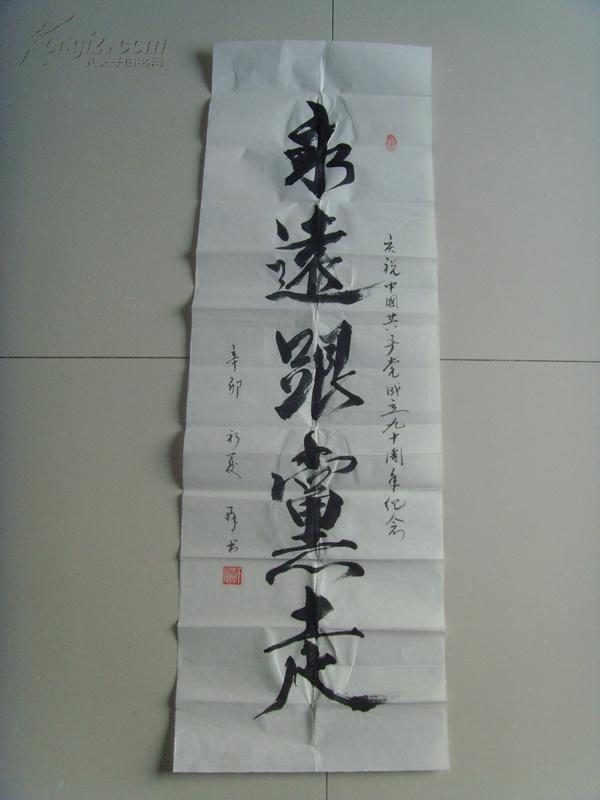 Kongfz.com
孔夫子旧书网
慶祝中國共产党成立九十周年纪念
永遠跟黨走
辛卯 初夏
书